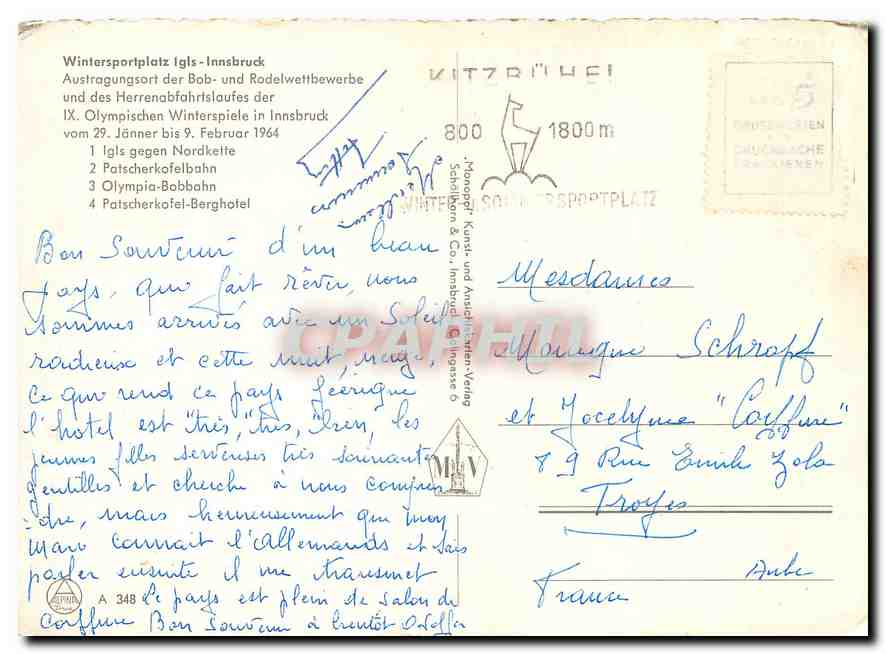 Wintersportplatz Igls-Innsbruck
Austragungsort der Bob- und Rodelwettbewerbe
und des Herrenabfahrtslaufes der
IX. Olympischen Winterspiele in Innsbruck
vom 29. Jänner bis 9. Februar 1964
1 Igls gegen Nordkette
2 Patscherkofelbahn
3 Olympia-Bobbahn
4 Patscherkofel-Berghotel
KITZBÜHEL
800 1800m
WINTER- SOMMERSPORTPLATZ
5
DRUCKSACHE
„Monopol" Kunst- und Ansichtskarten-Verlag
Schöllhorn & Co., Innsbruck, Colingasse 6
M V
Bon Souvenir d'un beau
pays, qui fait rêver, nous
sommes arrivés avec un Soleil
radieux et cette nuit, neige,
ce qui rend ce pays féérique
l'hotel est "très, "très, "bien, les
jeunes filles serveuses très souriantes
gentilles et cherche à nous compren
-dre, mais heureusement que mon
Marc connait l'Allemands et sais
parler ensuite il me transmet
Le pays est plein de salon de
coiffure Bon Souvenir à bientôt
ALPINA
A 348
Mesdames
Monique Schropf
et Jocelyne "Coiffure"
89 Rue Emile Zola
Troyes
Aube
France
CPAPHIL